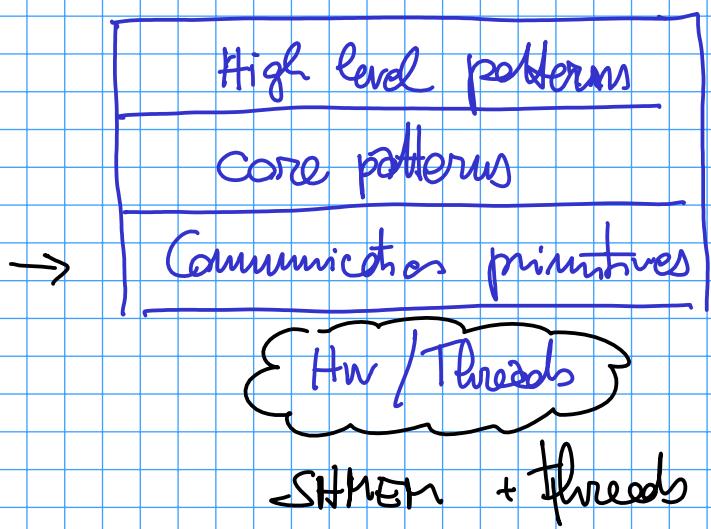 High level patterns
core patterns
Communication primitives
HW / Threads
SHMEM + threads